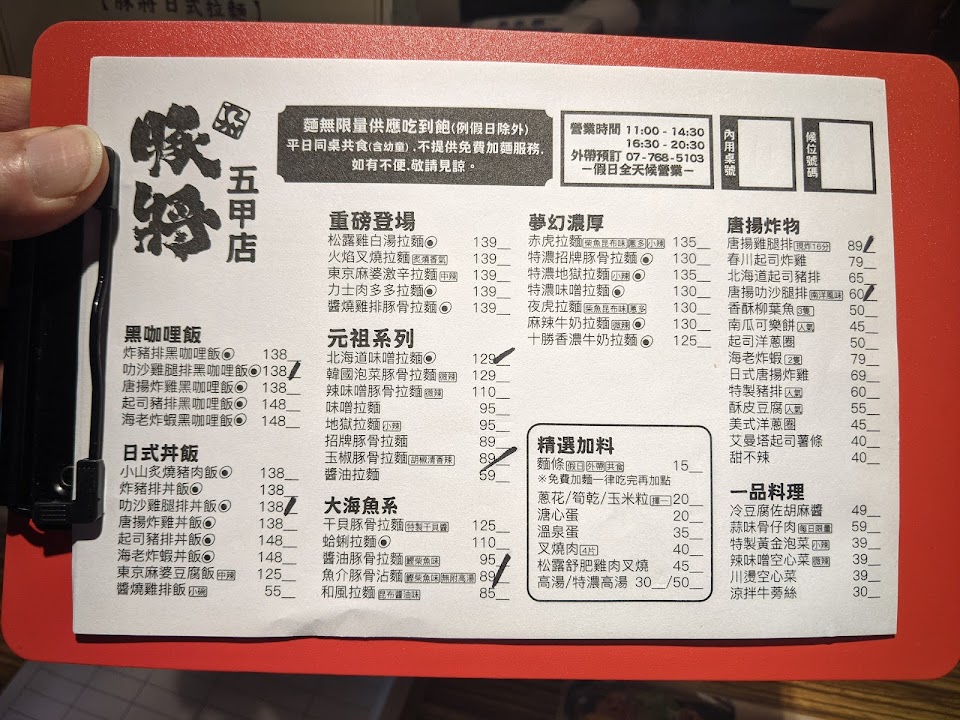 【豚將日式拉麵】
豚將
五甲店
麵無限量供應吃到飽(例假日除外)
平日同桌共食(含幼童).不提供免費加麵服務.
如有不便.敬請見諒。
營業時間 11:00 - 14:30
16:30 - 20:30
外帶預訂 07-768-5103
—假日全天候營業—
內用桌號
候位號碼
黑咖哩飯
炸豬排黑咖哩飯 138
叻沙雞腿排黑咖哩飯 138
唐揚炸雞黑咖哩飯 138
起司豬排黑咖哩飯 148
海老炸蝦黑咖哩飯 148
日式丼飯
小山炙燒豬肉飯 138
炸豬排丼飯 138
叻沙雞腿排丼飯 138
唐揚炸雞丼飯 138
起司豬排丼飯 148
海老炸蝦丼飯 148
東京麻婆豆腐飯 中辣 125
醬燒雞排飯 小碗 55
重磅登場
松露雞白湯拉麵 139
火焰叉燒拉麵 炙燒香氣 139
東京麻婆激辛拉麵 中辣 139
力士肉多多拉麵 139
醬燒雞排豚骨拉麵 139
元祖系列
北海道味噌拉麵 129
韓國泡菜豚骨拉麵 微辣 129
辣味噌豚骨拉麵 微辣 110
味噌拉麵 95
地獄拉麵 小辣 95
招牌豚骨拉麵 89
玉椒豚骨拉麵 胡椒清香辣 89
醬油拉麵 59
大海魚系
干貝豚骨拉麵 特製干貝醬 125
蛤蜊拉麵 110
醬油豚骨拉麵 鰹柴魚味 95
魚介豚骨沾麵 鰹柴魚味 無附高湯 89
和風拉麵 昆布醬油味 85
夢幻濃厚
赤虎拉麵 柴魚昆布味 蔥多 小辣 135
特濃招牌豚骨拉麵 130
特濃地獄拉麵 小辣 135
特濃味噌拉麵 130
夜虎拉麵 柴魚昆布味 蔥多 130
麻辣牛奶拉麵 微辣 130
十勝香濃牛奶拉麵 125
精選加料
麵條 假日 外帶 共食 15
※免費加麵一律吃完再加點
蔥花/筍乾/玉米粒 擇一 20
溏心蛋 20
溫泉蛋 35
叉燒肉 4片 40
松露舒肥雞肉叉燒 45
高湯/特濃高湯 30 /50
唐揚炸物
唐揚雞腿排 現炸16分 89
春川起司炸雞 79
北海道起司豬排 65
唐揚叻沙腿排 南洋風味 60
香酥柳葉魚 3隻 50
南瓜可樂餅 人氣 45
起司洋蔥圈 50
海老炸蝦 2隻 79
日式唐揚炸雞 69
特製豬排 人氣 60
酥皮豆腐 人氣 55
美式洋蔥圈 45
艾曼塔起司薯條 40
甜不辣 40
一品料理
冷豆腐佐胡麻醬 49
蒜味骨仔肉 每日限量 59
特製黃金泡菜 小辣 39
辣味噌空心菜 微辣 39
川燙空心菜 39
涼拌牛蒡絲 30